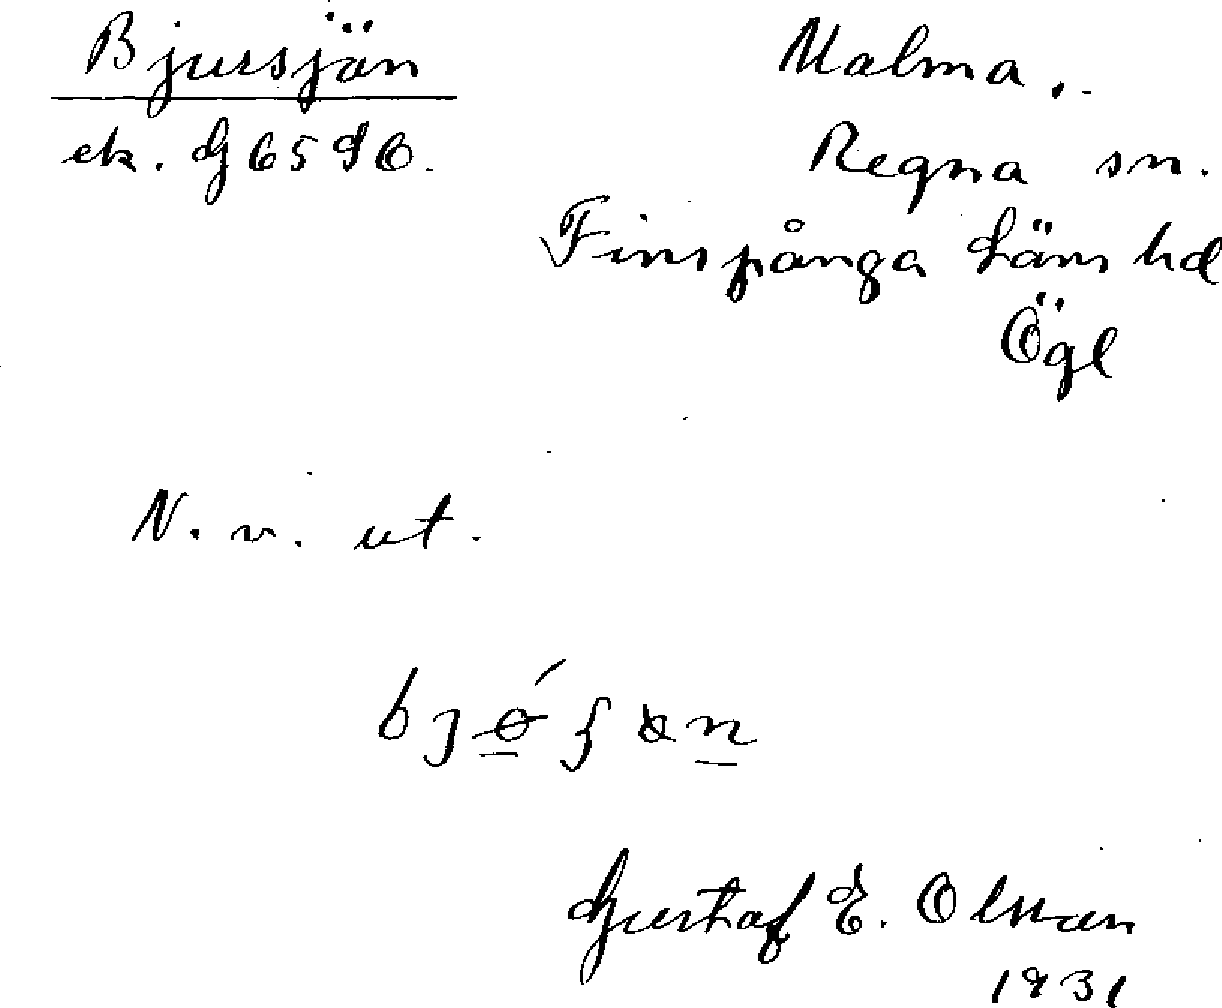 Bjursjön
ek. G 6596.
Malma.
Regna sn.
Finspånga läns hd
Ögl
N. v. ut.
Gustaf E. Olsson
1931